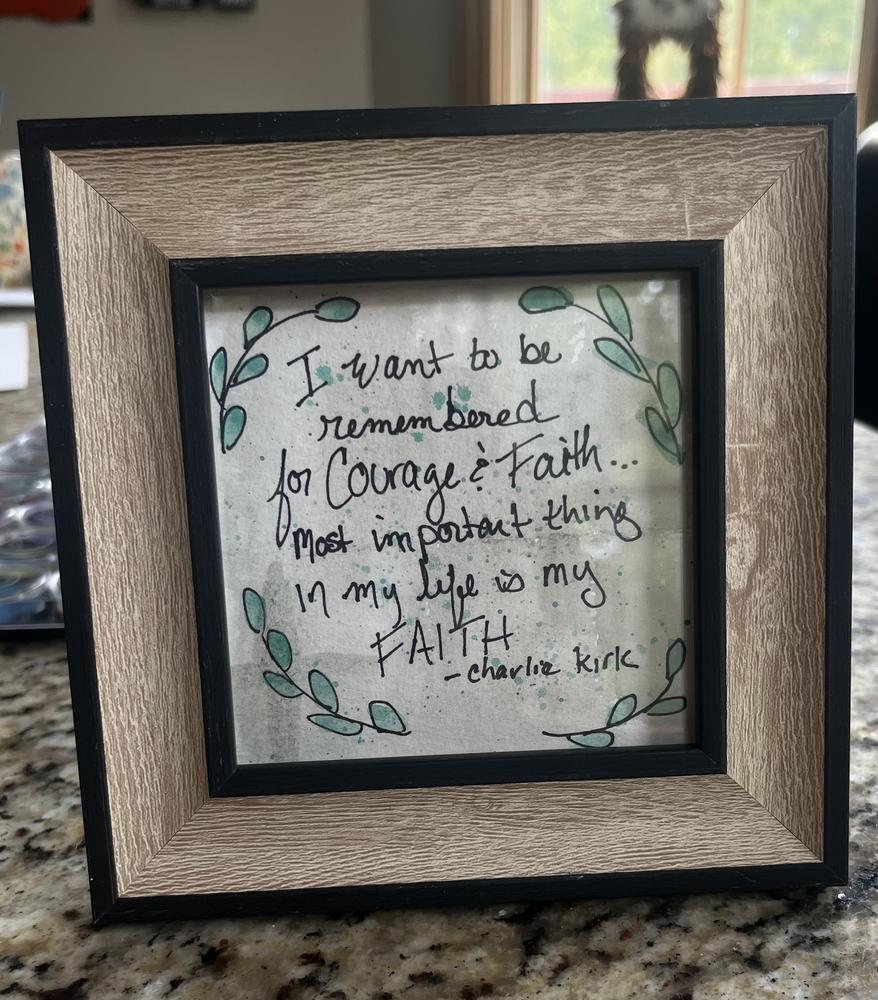 I want to be
remembered
for Courage & Faith...
most important thing
in my life is my
FAITH
-charlie kirk